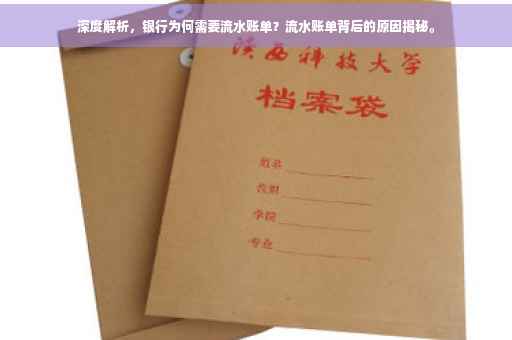 深度解析，银行为何需要流水账单？流水账单背后的原因揭秘。
陕西科技大学
档案袋
姓名
性别
学院
专业